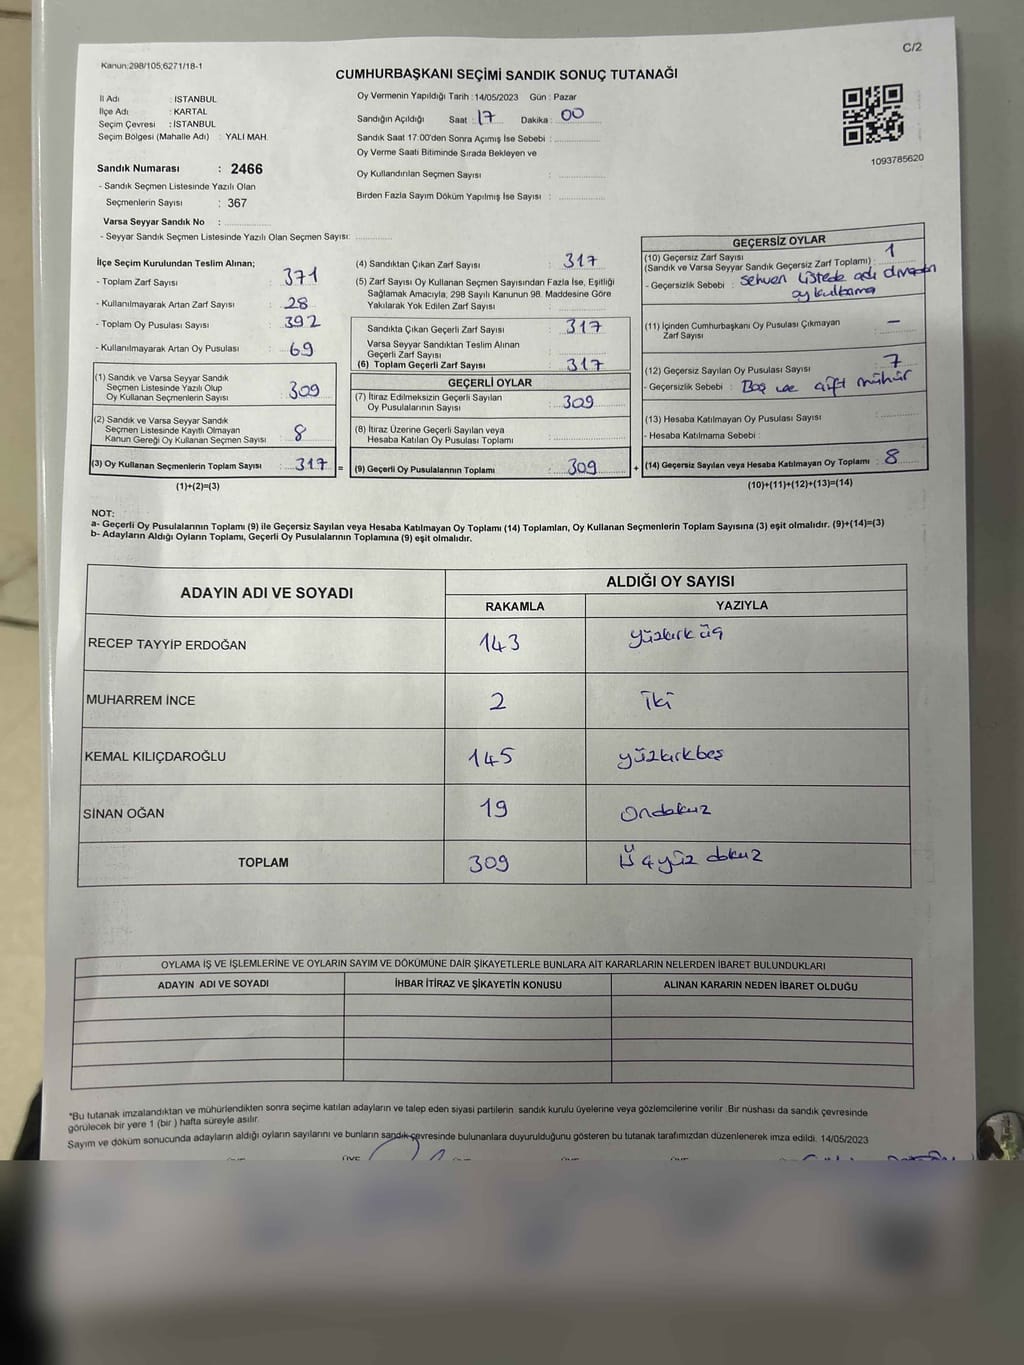 C/2
Kanun:298/105,6271/18-1
CUMHURBAŞKANI SEÇİMİ SANDIK SONUÇ TUTANAĞI
İl Adı : İSTANBUL
İlçe Adı : KARTAL
Seçim Çevresi : İSTANBUL
Seçim Bölgesi (Mahalle Adı) : YALI MAH.
Sandık Numarası : 2466
- Sandık Seçmen Listesinde Yazılı Olan
Seçmenlerin Sayısı : 367
Varsa Seyyar Sandık No :
- Seyyar Sandık Seçmen Listesinde Yazılı Olan Seçmen Sayısı:
Oy Vermenin Yapıldığı Tarih : 14/05/2023 Gün : Pazar
Sandığın Açıldığı Saat : 17 Dakika : 00
Sandık Saat 17:00'den Sonra Açımış İse Sebebi :
Oy Verme Saati Bitiminde Sırada Bekleyen ve
Oy Kullandırılan Seçmen Sayısı :
Birden Fazla Sayım Döküm Yapılmış İse Sayısı :
1093785620
İlçe Seçim Kurulundan Teslim Alınan;
- Toplam Zarf Sayısı : 371
- Kullanılmayarak Artan Zarf Sayısı : 28
- Toplam Oy Pusulası Sayısı : 392
- Kullanılmayarak Artan Oy Pusulası : 69
(1) Sandık ve Varsa Seyyar Sandık
Seçmen Listesinde Yazılı Olup
Oy Kullanan Seçmenlerin Sayısı : 309
(2) Sandık ve Varsa Seyyar Sandık
Seçmen Listesinde Kayıtlı Olmayan
Kanun Gereği Oy Kullanan Seçmen Sayısı : 8
(3) Oy Kullanan Seçmenlerin Toplam Sayısı : 317 =
(1)+(2)=(3)
(4) Sandıktan Çıkan Zarf Sayısı : 317
(5) Zarf Sayısı Oy Kullanan Seçmen Sayısından Fazla İse, Eşitliği
Sağlamak Amacıyla, 298 Sayılı Kanunun 98. Maddesine Göre
Yakılarak Yok Edilen Zarf Sayısı :
Sandıkta Çıkan Geçerli Zarf Sayısı : 317
Varsa Seyyar Sandıktan Teslim Alınan
Geçerli Zarf Sayısı :
(6) Toplam Geçerli Zarf Sayısı : 317
GEÇERLİ OYLAR
(7) İtiraz Edilmeksizin Geçerli Sayılan
Oy Pusulalarının Sayısı : 309
(8) İtiraz Üzerine Geçerli Sayılan veya
Hesaba Katılan Oy Pusulası Toplamı :
(9) Geçerli Oy Pusulalarının Toplamı : 309 +
GEÇERSİZ OYLAR
(10) Geçersiz Zarf Sayısı
(Sandık ve Varsa Seyyar Sandık Geçersiz Zarf Toplamı) : 1
- Geçersizlik Sebebi : Sehven Listede adı
oy
(11) İçinden Cumhurbaşkanı Oy Pusulası Çıkmayan
Zarf Sayısı : –
(12) Geçersiz Sayılan Oy Pusulası Sayısı : 7
- Geçersizlik Sebebi : Boş ve çift mühür
(13) Hesaba Katılmayan Oy Pusulası Sayısı :
- Hesaba Katılmama Sebebi :
(14) Geçersiz Sayılan veya Hesaba Katılmayan Oy Toplamı : 8
(10)+(11)+(12)+(13)=(14)
NOT:
a- Geçerli Oy Pusulalarının Toplamı (9) ile Geçersiz Sayılan veya Hesaba Katılmayan Oy Toplamı (14) Toplamları, Oy Kullanan Seçmenlerin Toplam Sayısına (3) eşit olmalıdır. (9)+(14)=(3)
b- Adayların Aldığı Oyların Toplamı, Geçerli Oy Pusulalarının Toplamına (9) eşit olmalıdır.
ADAYIN ADI VE SOYADI ALDIĞI OY SAYISI
RAKAMLA YAZIYLA
RECEP TAYYİP ERDOĞAN 143 yüzkırk üç
MUHARREM İNCE 2 iki
KEMAL KILIÇDAROĞLU 145 yüzkırkbeş
SİNAN OĞAN 19 Ondokuz
TOPLAM 309 Üçyüz dokuz
OYLAMA İŞ VE İŞLEMLERİNE VE OYLARIN SAYIM VE DÖKÜMÜNE DAİR ŞİKAYETLERLE BUNLARA AİT KARARLARIN NELERDEN İBARET BULUNDUKLARI
ADAYIN ADI VE SOYADI İHBAR İTİRAZ VE ŞİKAYETİN KONUSU ALINAN KARARIN NEDEN İBARET OLDUĞU
*Bu tutanak imzalandıktan ve mühürlendikten sonra seçime katılan adayların ve talep eden siyasi partilerin sandık kurulu üyelerine veya gözlemcilerine verilir .Bir nüshası da sandık çevresinde
görülecek bir yere 1 (bir ) hafta süreyle asılır.
Sayım ve döküm sonucunda adayların aldığı oyların sayılarını ve bunların sandık çevresinde bulunanlara duyurulduğunu gösteren bu tutanak tarafımızdan düzenlenerek imza edildi. 14/05/2023